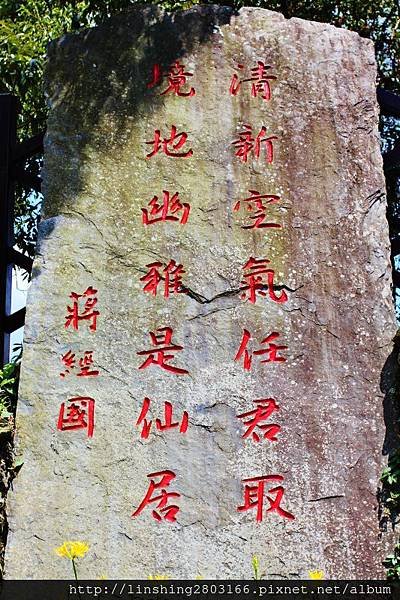 清新空氣任君取
境地幽雅是仙居
蔣經國
http://linshing2803166.pixnet.net/album